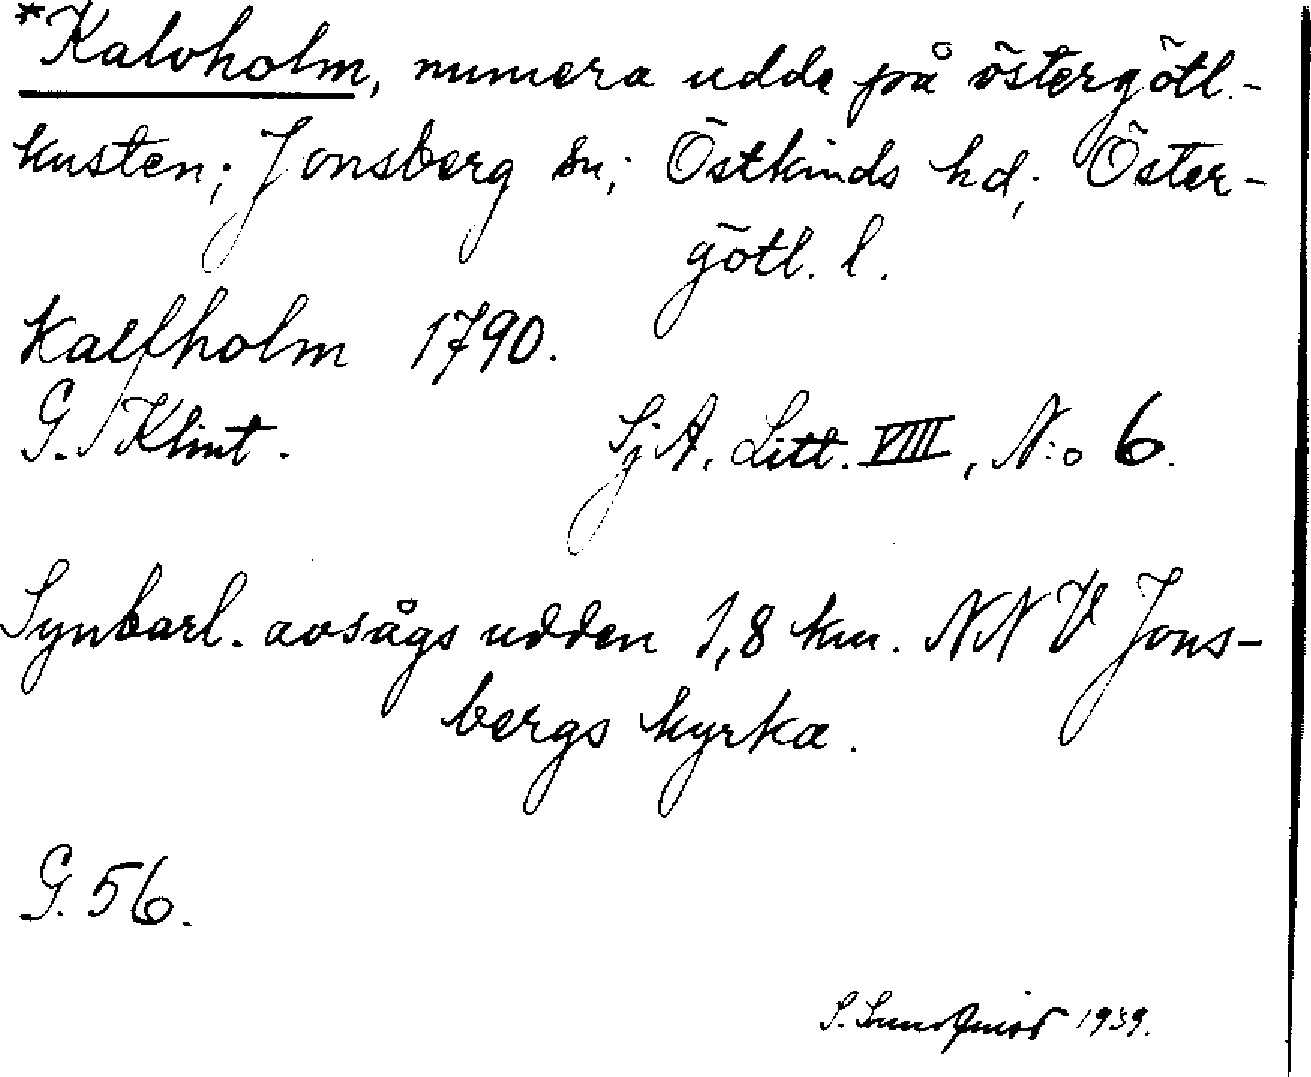 *Kalvholm, numera udde på östergötl.-
kusten; Jonsberg sn; Östkinds hd; Öster-
götl. l.
Kalfholm 1790.
G. Klint. Sj A. Litt. VIII, N:o 6.
Synbarl. avsågs udden 1,8 km. NNV Jons-
bergs kyrka.
G. 56.
S. Lundqvist 1939.